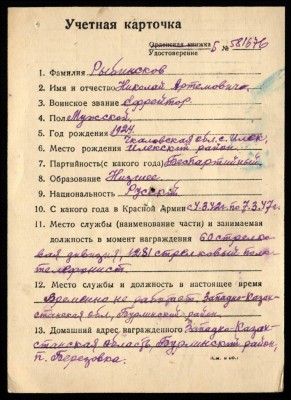 Учетная карточка
Орденская книжка
Удостоверение Б № 581676
1. Фамилия Рыбинсков
2. Имя и отчество Николай Артемович
3. Воинское звание Ефрейтор
4. Пол Мужской
5. Год рождения 1924
Чкаловская обл. с. Илек,
6. Место рождения Илекский район
7. Партийность (с какого года) Беспартийный
8. Образование Низшее
9. Национальность Русский
10. С какого года в Красной Армии с 4.3.42г. по 7.3.47г.
11. Место службы (наименование части) и занимаемая
должность в момент награждения 60 стрелко
вая дивизия, 1281 стрелковый полк
телефонист
12. Место службы и должность в настоящее время
Временно не работает. Западно-Казах
станская обл, Бурлинский район
13. Домашний адрес награжденного Западно-Казах
станская область, Бурлинский район,
п. Березовка.